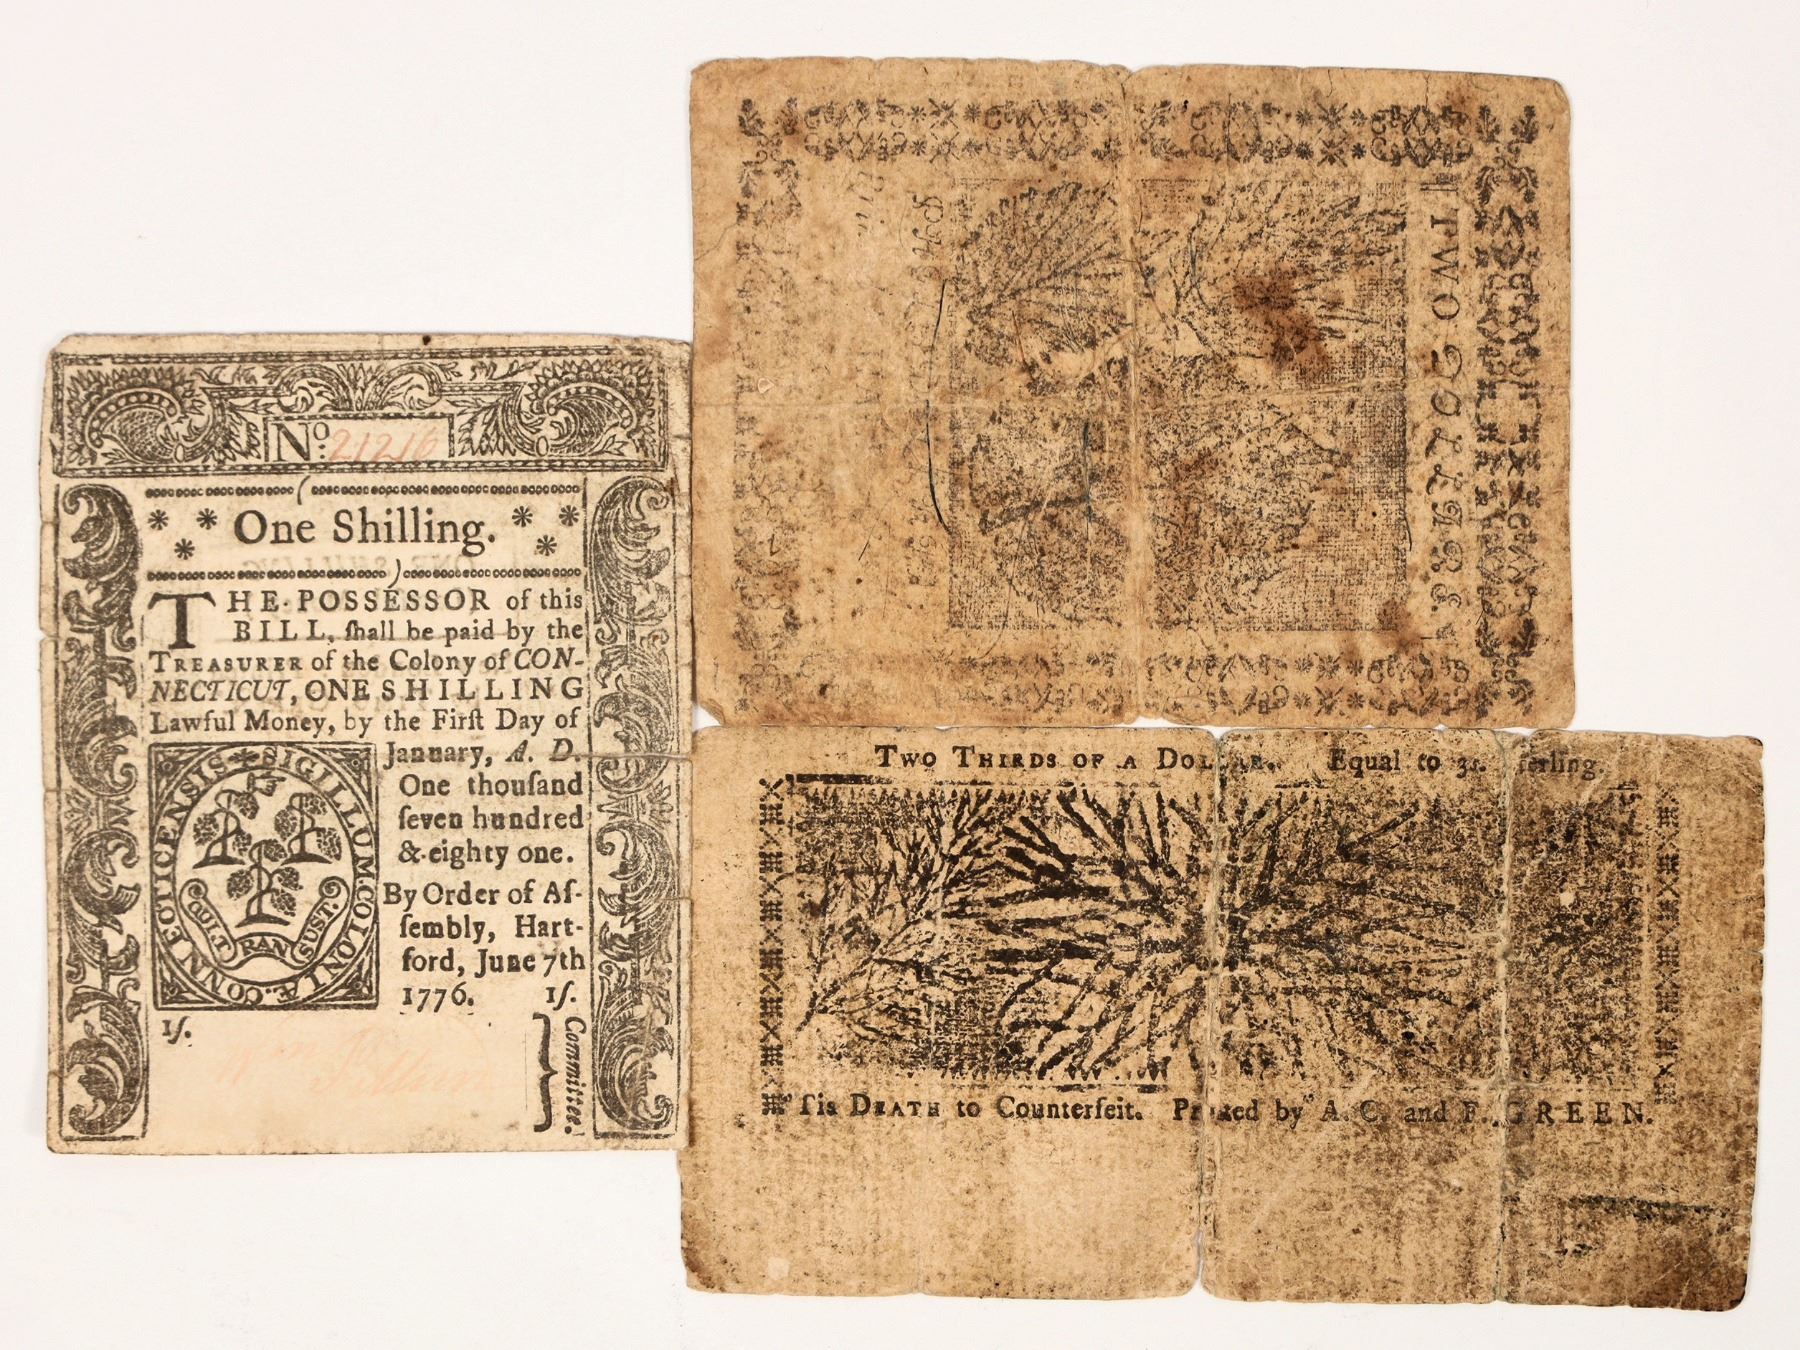 No. 21216
One Shilling.
THE POSSESSOR of this
BILL, ſhall be paid by the
TREASURER of the Colony of CON-
NECTICUT, ONE SHILLING
Lawful Money, by the Firſt Day of
January, A. D.
One thouſand
ſeven hundred
& eighty one.
By Order of Aſ-
ſembly, Hart-
ford, June 7th
1776. 1ſ.
SIGILLUM. COLONIÆ. CONNECTICENSIS
QUI TRAN SUST.
1ſ.
Committee.
TWO DOLLARS.
TWO THIRDS OF A DOLLAR. Equal to 3s. ſterling.
'Tis DEATH to Counterfeit. Printed by A. C. and F. GREEN.